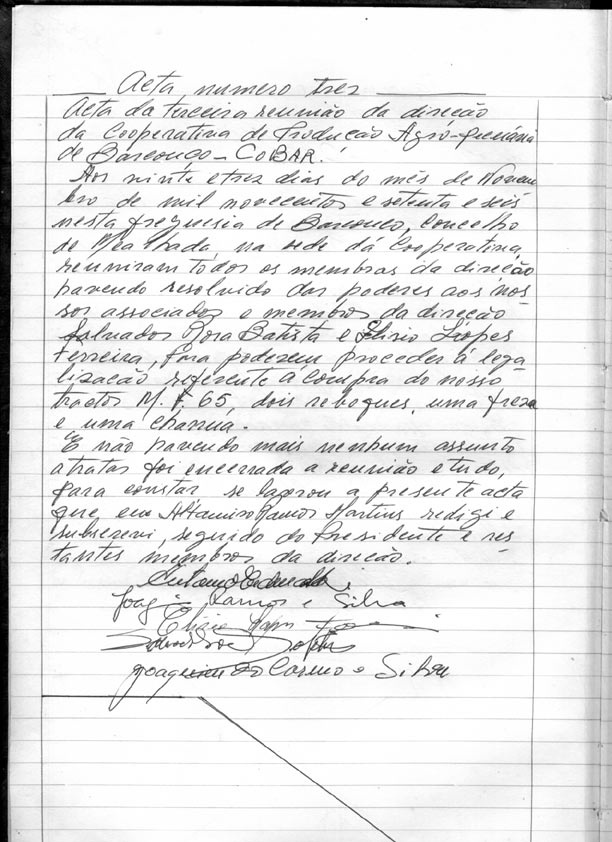 Acta numero tres
Acta da terceira reunião da direcção
da Cooperativa de Produção Agró-pecuária
de Barcouço - COBAR.
Aos vinte e trez dias do mês de Novem
bro de mil novecentos e setenta e seis
nesta freguesia de Barcouço, concelho
de Mealhada, na sede da Cooperativa,
reuniram todos os membros da direcção
havendo resolvido dar poderes aos nos
sos associados e membros da direcção
Salvador Rosa Batista e Elisio Lopes
Ferreira, para poderem proceder á lega
lização referente á compra do nosso
tractor M. F. 65, dois reboques, uma freza
e uma charrua.
E não havendo mais nenhum assunto
a tratar foi encerrada a reunião e tudo,
para constar, se lavrou a presente acta
que, eu Altamiro Ramos Martins redigi e
subscrevi, seguido do Presidente e res
tantes membros da direcão.
Joaqim Ramos e Silva
Elisio Lopes
Joaquim do Carmo e Silva